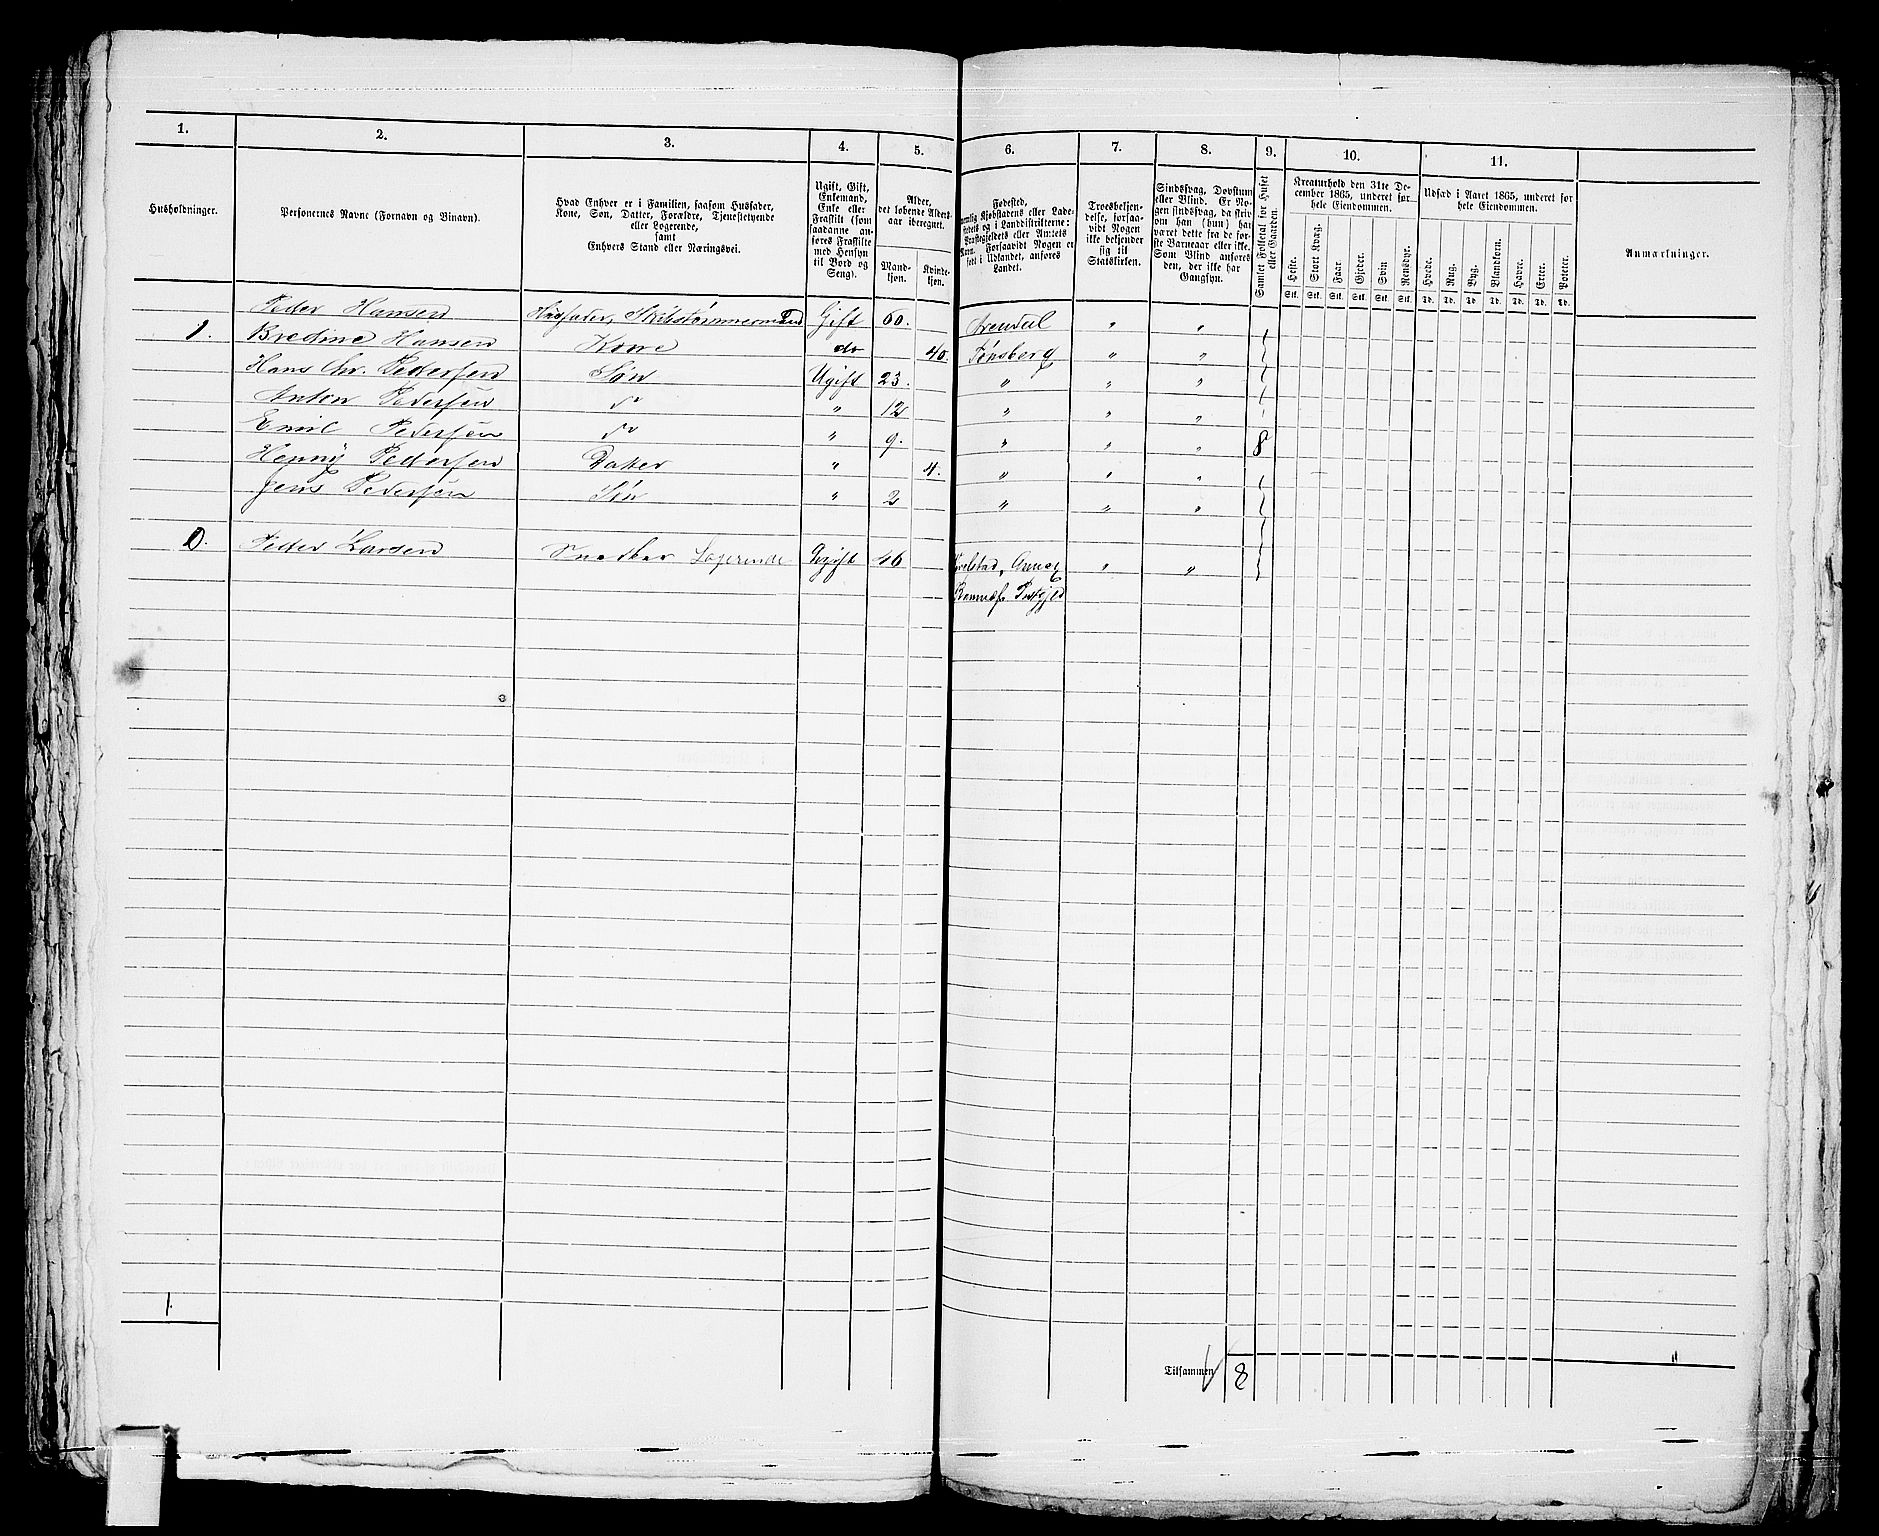 1. 2. 3. 4. 5. 6. 7. 8. 9. 10. 11.
Husholdninger.
Personernes Navne (Fornavn og Binavn).
Hvad Enhver er i Familien, saasom Husfader,
Kone, Søn, Datter, Forældre, Tjenestetyende
eller Logerende,
samt
Enhvers Stand eller Næringsvei.
Ugift, Gift,
Enkemand,
Enke eller
Fraskilt (som
saadanne an-
føres Fraskilte
med Hensyn
til Bord og
Seng).
Alder,
det løbende Alders-
aar iberegnet.
Mand-
kjøn.
Kvinde-
kjøn.
Fødested,
nemlig Kjøbstadens eller Lade-
stedets og i Landdistrikterne:
Præstegjeldets eller Amtets
Navn. Forsaavidt Nogen er
født i Udlandet, anføres
Landet.
Troesbekjen-
delse, forsaa-
vidt Nogen
ikke bekjender
sig til
Statskirken.
Sindssvag, Døvstum
eller Blind. Er No-
gen sindssvag, da skriv
om han (hun) har
været dette fra de før-
ste Barneaar eller ikke.
Som Blind anføres
den, der ikke har
Gangsyn.
Samlet Folketal for Huset
eller Gaarden.
Kreaturhold den 31te De-
cember 1865, underet for
hele Eiendommen.
Heste. Stort Kvæg. Faar. Gjeder. Svin Rensdyr.
Stk. Stk. Stk. Stk. Stk. Stk.
Udsæd i Aaret 1865, underet for
hele Eiendommen.
Hvede. Rug. Byg. Blandkorn. Havre. Erter. Poteter.
Td. Td. Td. Td. Td. Td. Td.
Anmærkninger.
Peder Hansen Husfader, Gift 60. Arendal " "
1. Bredine Hansen Kone do 40. Tønsberg " "
Hans Chr. Pedersen Søn Ugift 23. " " "
Anton Pedersen do " 12 " " "
Emil Pedersen do " 9. " " " 8
Henny Pedersen Datter " 4. " " "
Jens Pedersen Søn " 2 " " "
0. Petter Larsen Snedker Logerende Ugift 46 " "
1.
Tilsammen 8 "